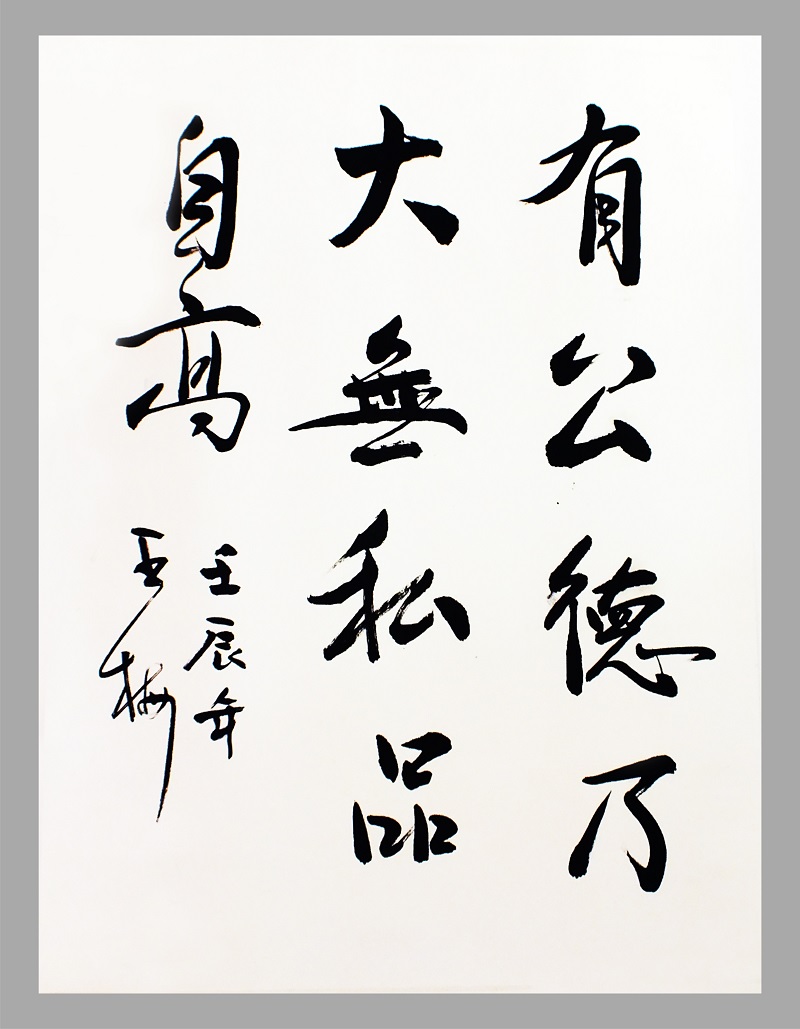 有公德乃
大無私品
自高
壬辰年
玉梅